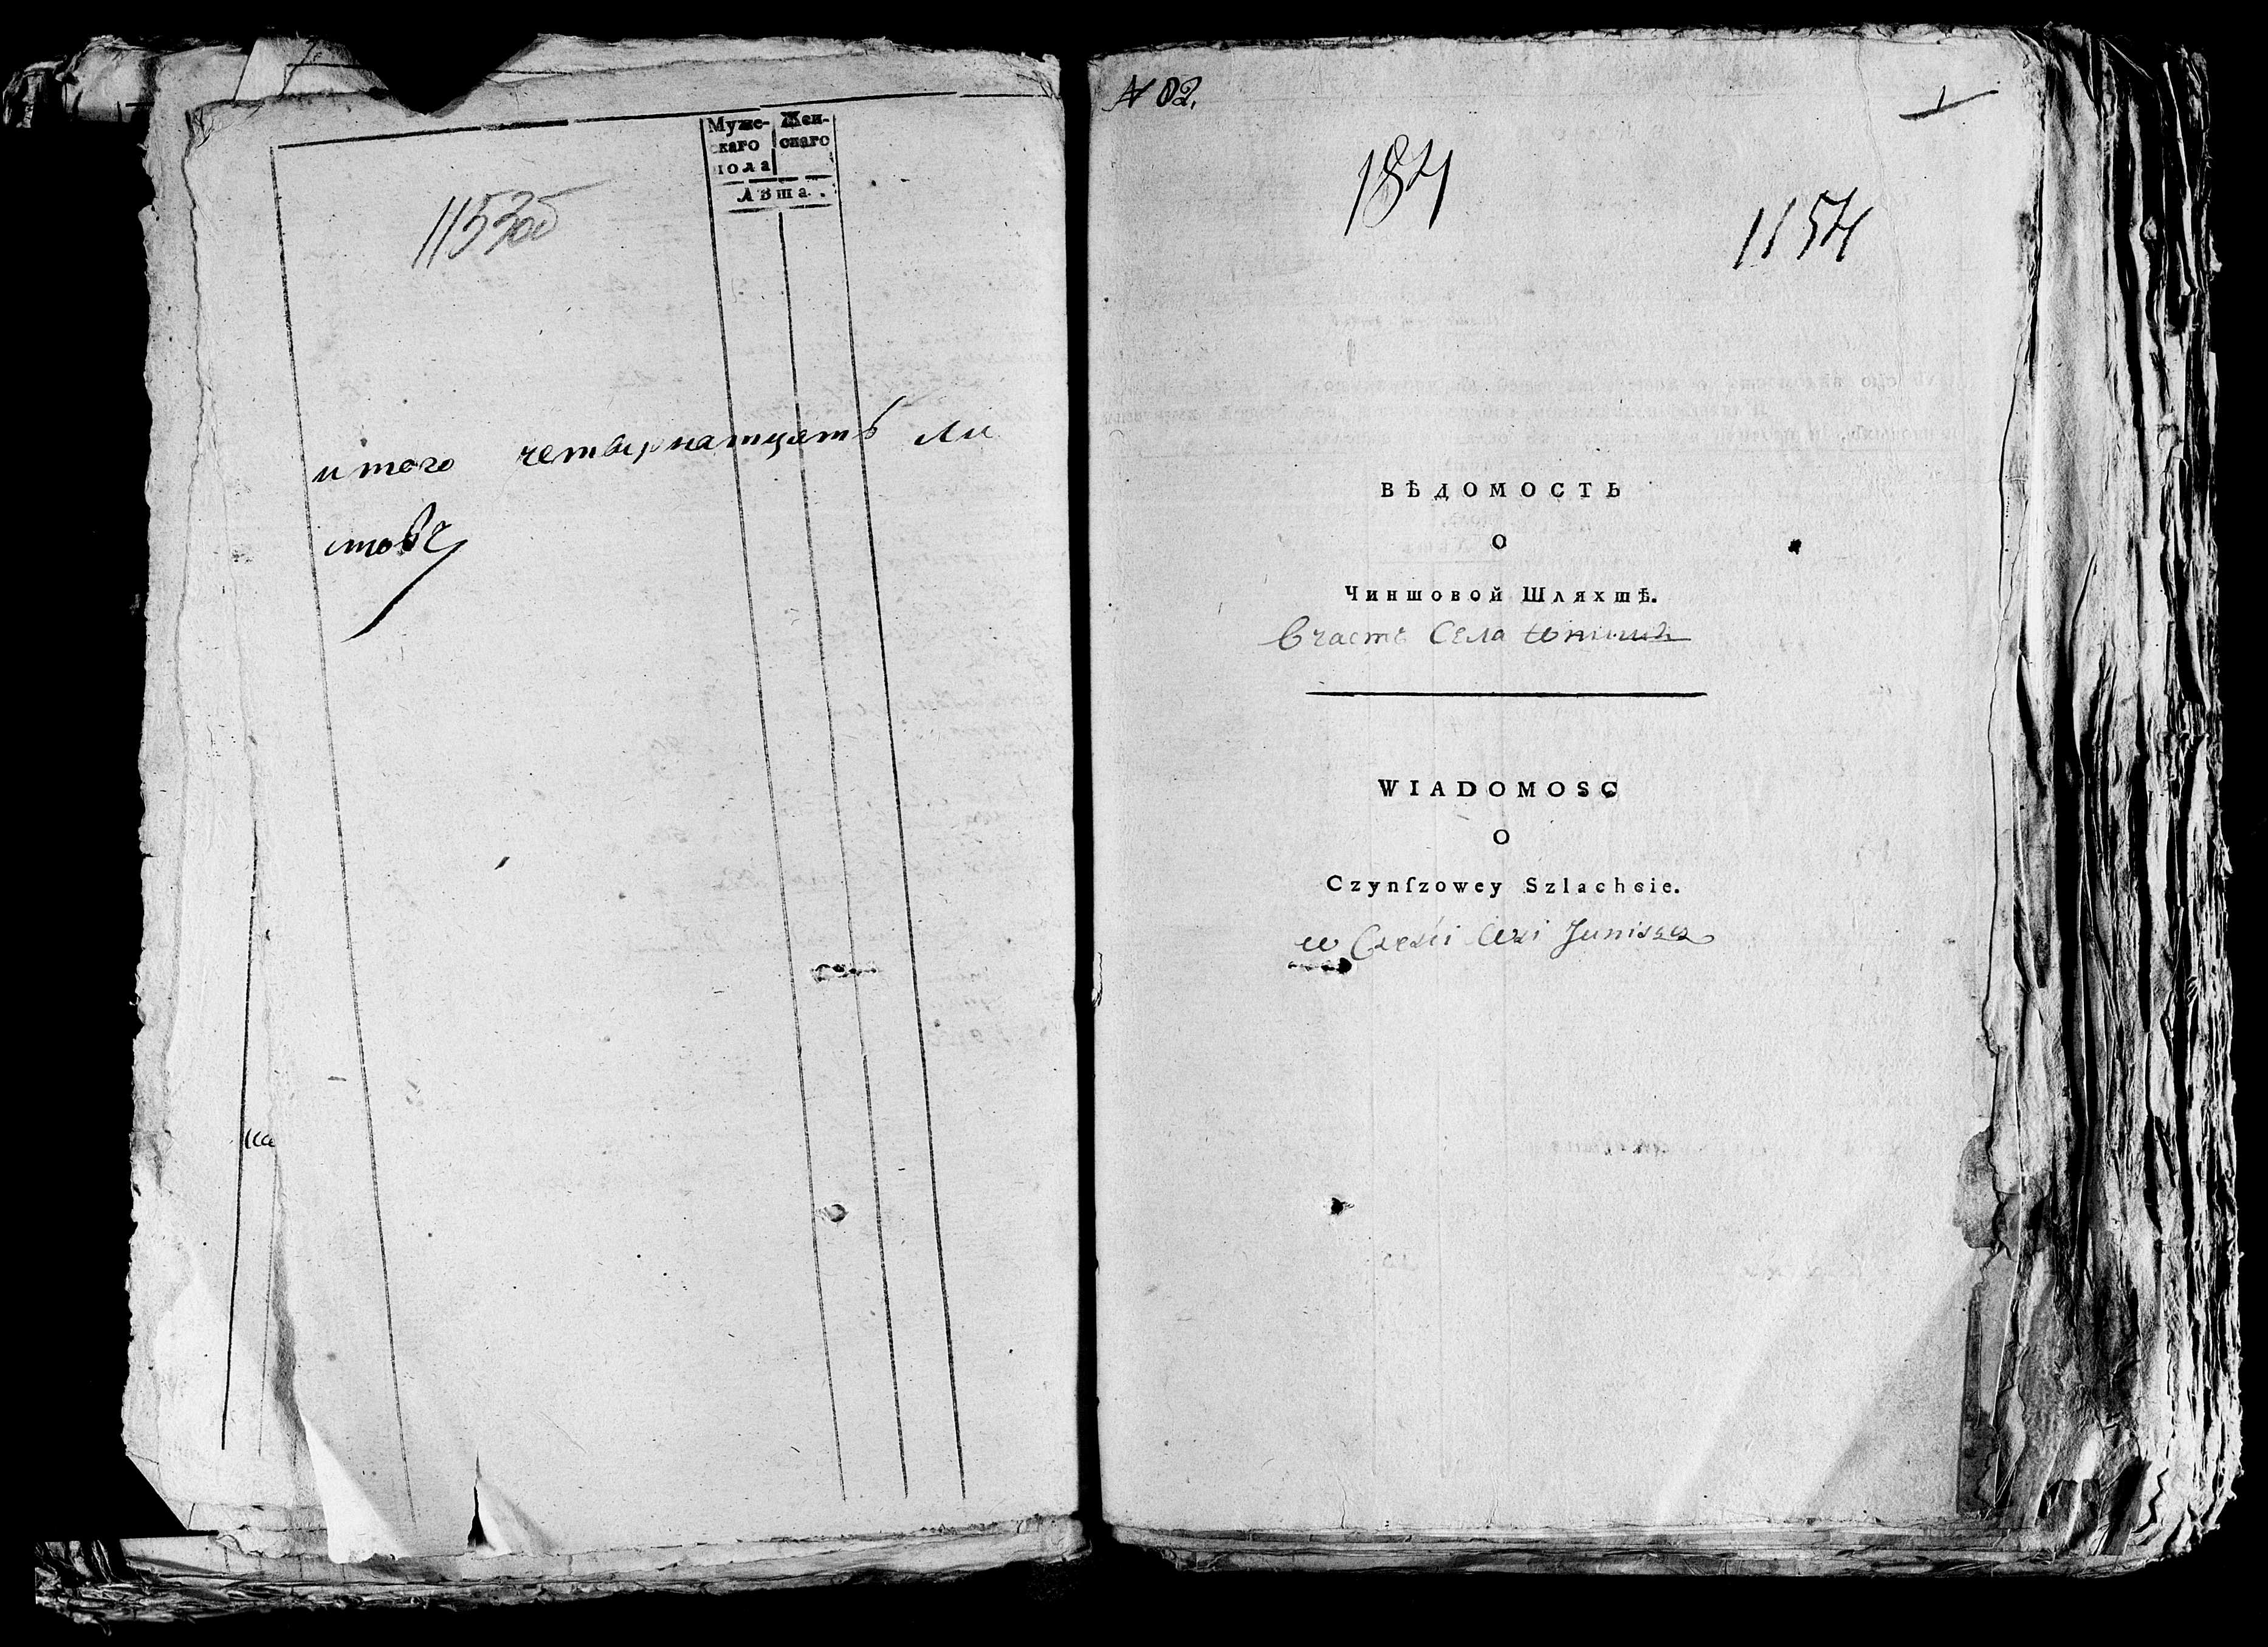 Муже-
скаго
пола
Жен-
скаго
Лѣта.
1153об
итого четырнатцать ли
стовъ
на
№ 82.
1
184
1154
ВѢДОМОСТЬ
О
Чиншовой Шляхтѣ.
В части Села Юнищъ
WIADOMOSC
O
Czynſzowey Szlachcie.
w Części Wsi Juniszcz